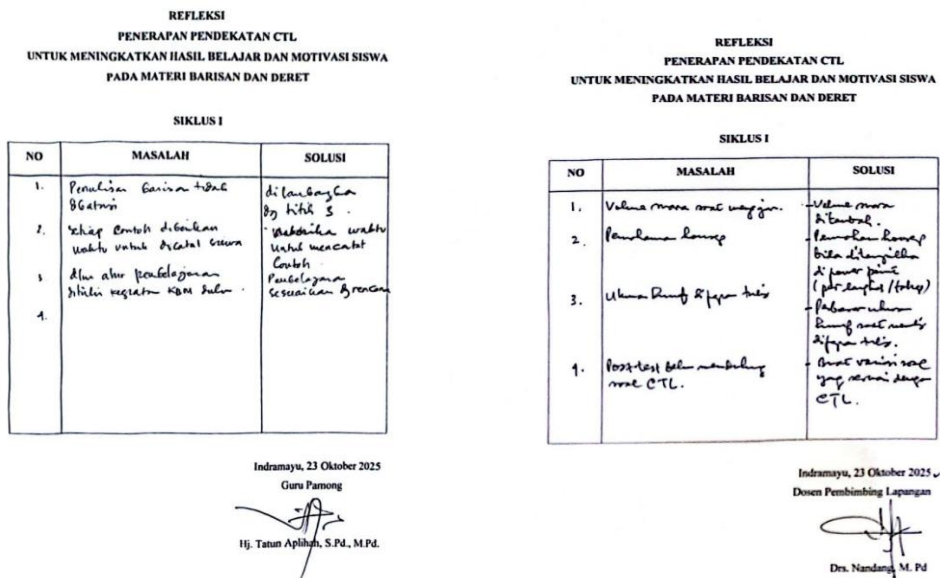 REFLEKSI
PENERAPAN PENDEKATAN CTL
UNTUK MENINGKATKAN HASIL BELAJAR DAN MOTIVASI SISWA
PADA MATERI BARISAN DAN DERET
SIKLUS I
NO MASALAH SOLUSI
1. Penulisan barisan tidak
2. Setiap contoh diberikan waktu untuk dicatat siswa
untuk mencatat
contoh
3 alur pembelajaran
Pembelajaran
sesuaikan
4.
Indramayu, 23 Oktober 2025
Guru Pamong
Hj. Tatun Aplihah, S.Pd., M.Pd.
REFLEKSI
PENERAPAN PENDEKATAN CTL
UNTUK MENINGKATKAN HASIL BELAJAR DAN MOTIVASI SISWA
PADA MATERI BARISAN DAN DERET
SIKLUS I
NO MASALAH SOLUSI
1. Volume suara saat mengajar. - Volume suara
ditambah.
2. Pemahaman konsep - Pemahaman konsep
bisa ditampilkan
di power point
3. Ukuran huruf di papan tulis
- Perbesar ukuran
huruf saat menulis
di papan tulis.
4. Post-test belum mendukung - Buat variasi soal
soal CTL. yang sesuai dengan
CTL.
Indramayu, 23 Oktober 2025
Dosen Pembimbing Lapangan
Drs. Nandang, M. Pd